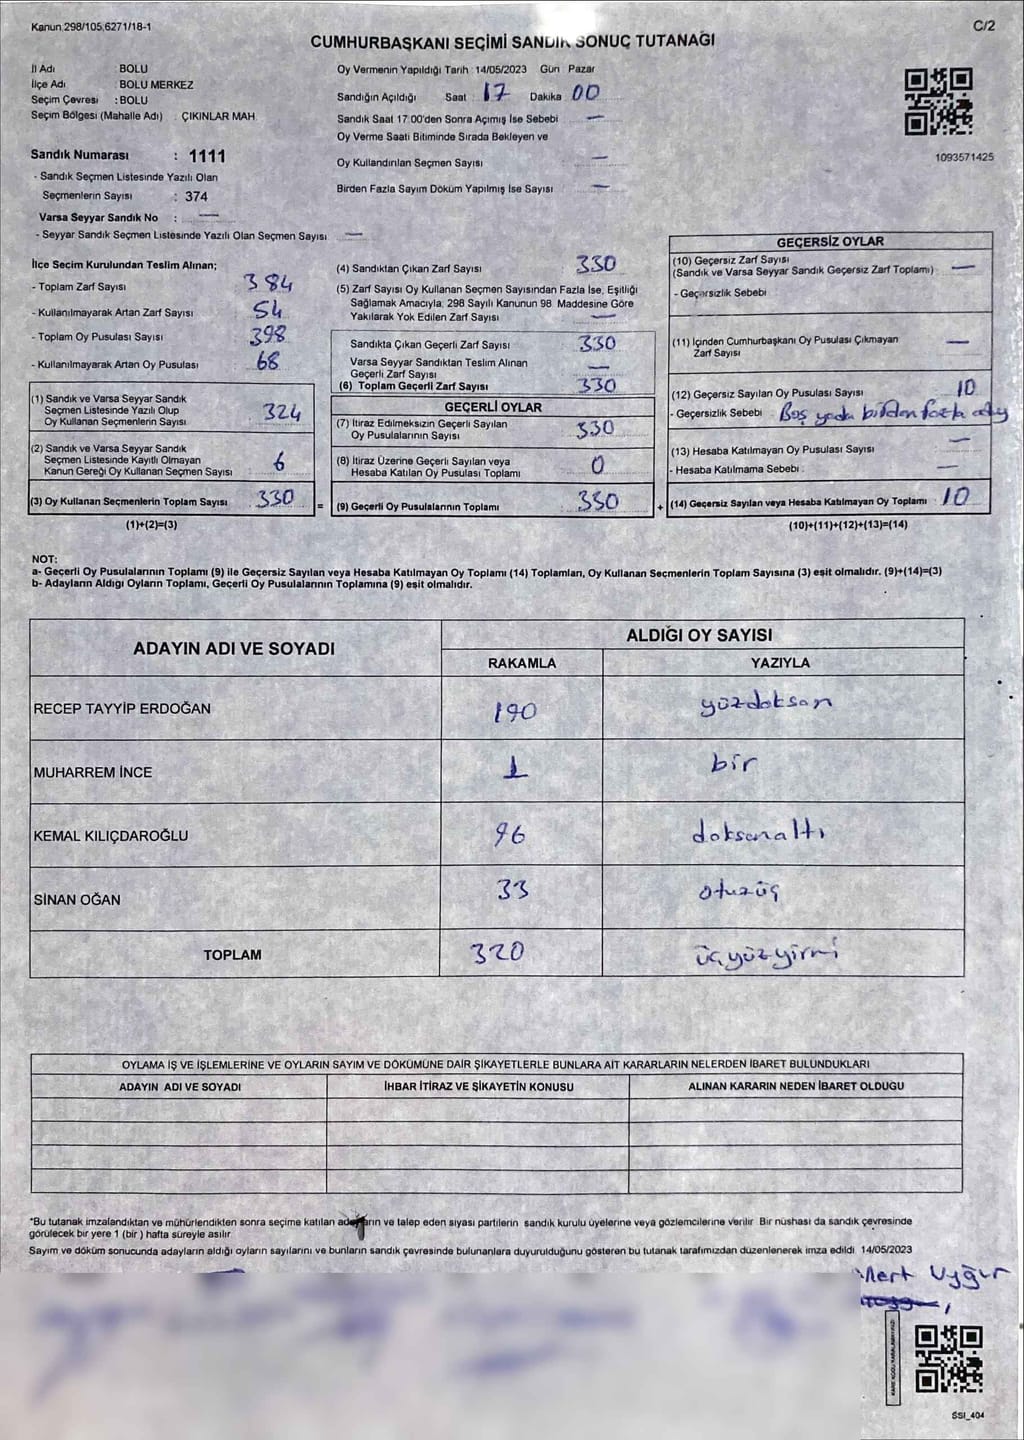 Kanun 298/105,6271/18-1
C/2
CUMHURBAŞKANI SEÇİMİ SANDIK SONUÇ TUTANAĞI
İl Adı : BOLU
İlçe Adı : BOLU MERKEZ
Seçim Çevresi : BOLU
Seçim Bölgesi (Mahalle Adı) : ÇIKINLAR MAH.
Sandık Numarası : 1111
- Sandık Seçmen Listesinde Yazılı Olan
Seçmenlerin Sayısı : 374
Varsa Seyyar Sandık No : —
- Seyyar Sandık Seçmen Listesinde Yazılı Olan Seçmen Sayısı —
Oy Vermenin Yapıldığı Tarih : 14/05/2023 Gün Pazar
Sandığın Açıldığı Saat : 17 Dakika 00
Sandık Saat 17:00'den Sonra Açımış İse Sebebi —
Oy Verme Saati Bitiminde Sırada Bekleyen ve
Oy Kullandırılan Seçmen Sayısı —
Birden Fazla Sayım Döküm Yapılmış İse Sayısı —
1093571425
İlçe Seçim Kurulundan Teslim Alınan;
- Toplam Zarf Sayısı 384
- Kullanılmayarak Artan Zarf Sayısı 54
- Toplam Oy Pusulası Sayısı 398
- Kullanılmayarak Artan Oy Pusulası 68
(1) Sandık ve Varsa Seyyar Sandık
Seçmen Listesinde Yazılı Olup
Oy Kullanan Seçmenlerin Sayısı 324
(2) Sandık ve Varsa Seyyar Sandık
Seçmen Listesinde Kayıtlı Olmayan
Kanun Gereği Oy Kullanan Seçmen Sayısı 6
(3) Oy Kullanan Seçmenlerin Toplam Sayısı 330
(1)+(2)=(3)
=
(4) Sandıktan Çıkan Zarf Sayısı 330
(5) Zarf Sayısı Oy Kullanan Seçmen Sayısından Fazla İse, Eşitliği
Sağlamak Amacıyla, 298 Sayılı Kanunun 98. Maddesine Göre
Yakılarak Yok Edilen Zarf Sayısı —
Sandıkta Çıkan Geçerli Zarf Sayısı 330
Varsa Seyyar Sandıktan Teslim Alınan
Geçerli Zarf Sayısı —
(6) Toplam Geçerli Zarf Sayısı 330
GEÇERLİ OYLAR
(7) İtiraz Edilmeksizin Geçerli Sayılan
Oy Pusulalarının Sayısı 330
(8) İtiraz Üzerine Geçerli Sayılan veya
Hesaba Katılan Oy Pusulası Toplamı 0
(9) Geçerli Oy Pusulalarının Toplamı 330
+
GEÇERSİZ OYLAR
(10) Geçersiz Zarf Sayısı
(Sandık ve Varsa Seyyar Sandık Geçersiz Zarf Toplamı) —
- Geçersizlik Sebebi
(11) İçinden Cumhurbaşkanı Oy Pusulası Çıkmayan
Zarf Sayısı —
(12) Geçersiz Sayılan Oy Pusulası Sayısı 10
- Geçersizlik Sebebi : Boş yada birden fazla oy
(13) Hesaba Katılmayan Oy Pusulası Sayısı —
- Hesaba Katılmama Sebebi : —
(14) Geçersiz Sayılan veya Hesaba Katılmayan Oy Toplamı 10
(10)+(11)+(12)+(13)=(14)
NOT:
a- Geçerli Oy Pusulalarının Toplamı (9) ile Geçersiz Sayılan veya Hesaba Katılmayan Oy Toplamı (14) Toplamları, Oy Kullanan Seçmenlerin Toplam Sayısına (3) eşit olmalıdır. (9)+(14)=(3)
b- Adayların Aldığı Oyların Toplamı, Geçerli Oy Pusulalarının Toplamına (9) eşit olmalıdır.
ADAYIN ADI VE SOYADI
ALDIĞI OY SAYISI
RAKAMLA YAZIYLA
RECEP TAYYİP ERDOĞAN 190 yüzdoksan
MUHARREM İNCE 1 bir
KEMAL KILIÇDAROĞLU 96 doksanaltı
SİNAN OĞAN 33 otuzüç
TOPLAM 320 üçyüzyirmi
OYLAMA İŞ VE İŞLEMLERİNE VE OYLARIN SAYIM VE DÖKÜMÜNE DAİR ŞİKAYETLERLE BUNLARA AİT KARARLARIN NELERDEN İBARET BULUNDUKLARI
ADAYIN ADI VE SOYADI İHBAR İTİRAZ VE ŞİKAYETİN KONUSU ALINAN KARARIN NEDEN İBARET OLDUĞU
*Bu tutanak imzalandıktan ve mühürlendikten sonra seçime katılan adayların ve talep eden siyası partilerin sandık kurulu üyelerine veya gözlemcilerine verilir. Bir nüshası da sandık çevresinde
görülecek bir yere 1 (bir) hafta süreyle asılır.
Sayım ve döküm sonucunda adayların aldığı oyların sayılarını ve bunların sandık çevresinde bulunanlara duyurulduğunu gösteren bu tutanak tarafımızdan düzenlenerek imza edildi. 14/05/2023
Mert Uyğur
SSI_404